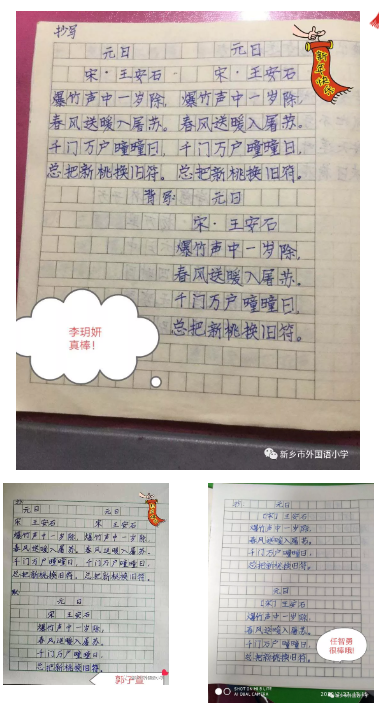 抄写
元日 元日
宋·王安石 宋·王安石
爆竹声中一岁除, 爆竹声中一岁除,
春风送暖入屠苏。 春风送暖入屠苏。
千门万户曈曈日, 千门万户曈曈日,
总把新桃换旧符。 总把新桃换旧符。
背写: 元日
宋·王安石
爆竹声中一岁除,
春风送暖入屠苏。
千门万户曈曈日,
总把新桃换旧符。
新年快乐
李玥妍
真棒!
新乡市外国语小学
抄:
元日 元日
宋 王安石 宋 王安石
爆竹声中一岁除, 爆竹声中一岁除,
春风送暖入屠苏。 春风送暖入屠苏.
千门万户曈曈日, 千门万户曈曈日,
总把新桃换旧符。 总把新桃换旧符。
默
元 日
宋 王安石
爆竹声中一岁除,
春风送暖入屠苏。
千门万户曈曈日,
总把新桃换旧符。
郭子萱
元日
[宋] 王安石
爆竹声中一岁除,
春风送暖入屠苏。
千门万户曈曈日,
总把新桃换旧符。
[宋] 王安石
爆竹声中一岁除,
春风送暖入屠苏。
千门万户曈曈日,
总把新桃换旧符。
任智勇
很棒哦!
SHOT ON MI 9 LITE
AI TRIPLE CAMERA